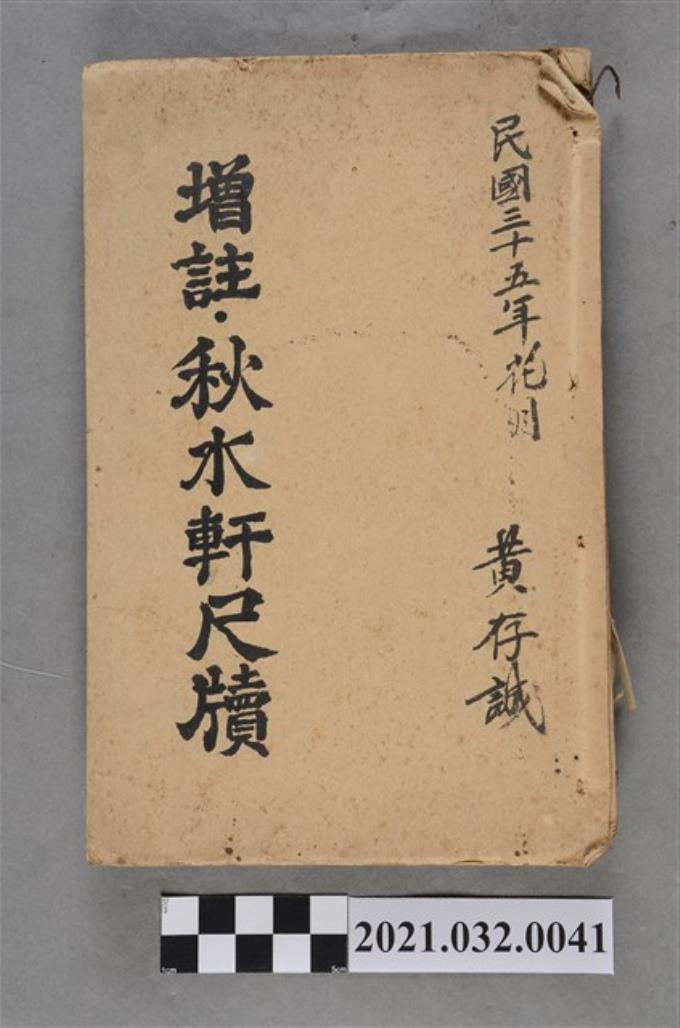 民國三十五年花月
黃存誠
增註·秋水軒尺牘
2021.032.0041
1cm
5cm